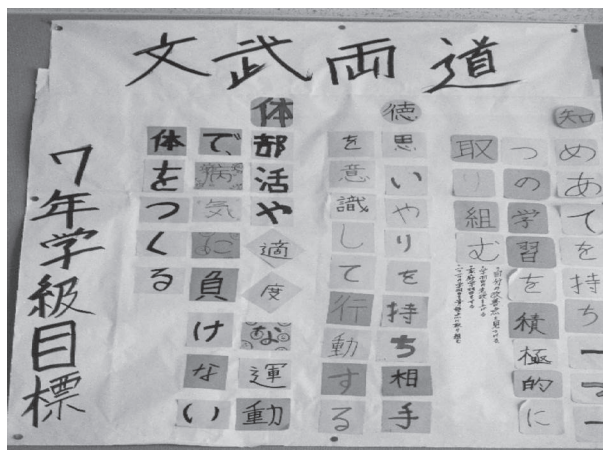 文武両道
知
めあてを持ち一つ一
つの学習を積極的に
取り組む
徳
思いやりを持ち相手
を意識して行動する
体
部活や適度な運動
で、病気に負けない
体をつくる
7年学級目標